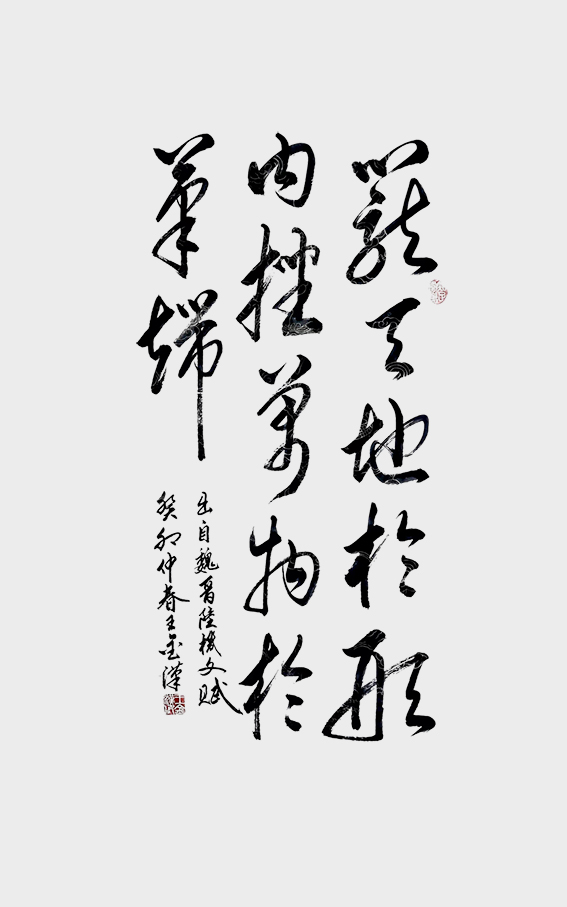 籠天地於形
内挫萬物於
筆端
出自魏晉陸機文賦
癸卯仲春王金漢